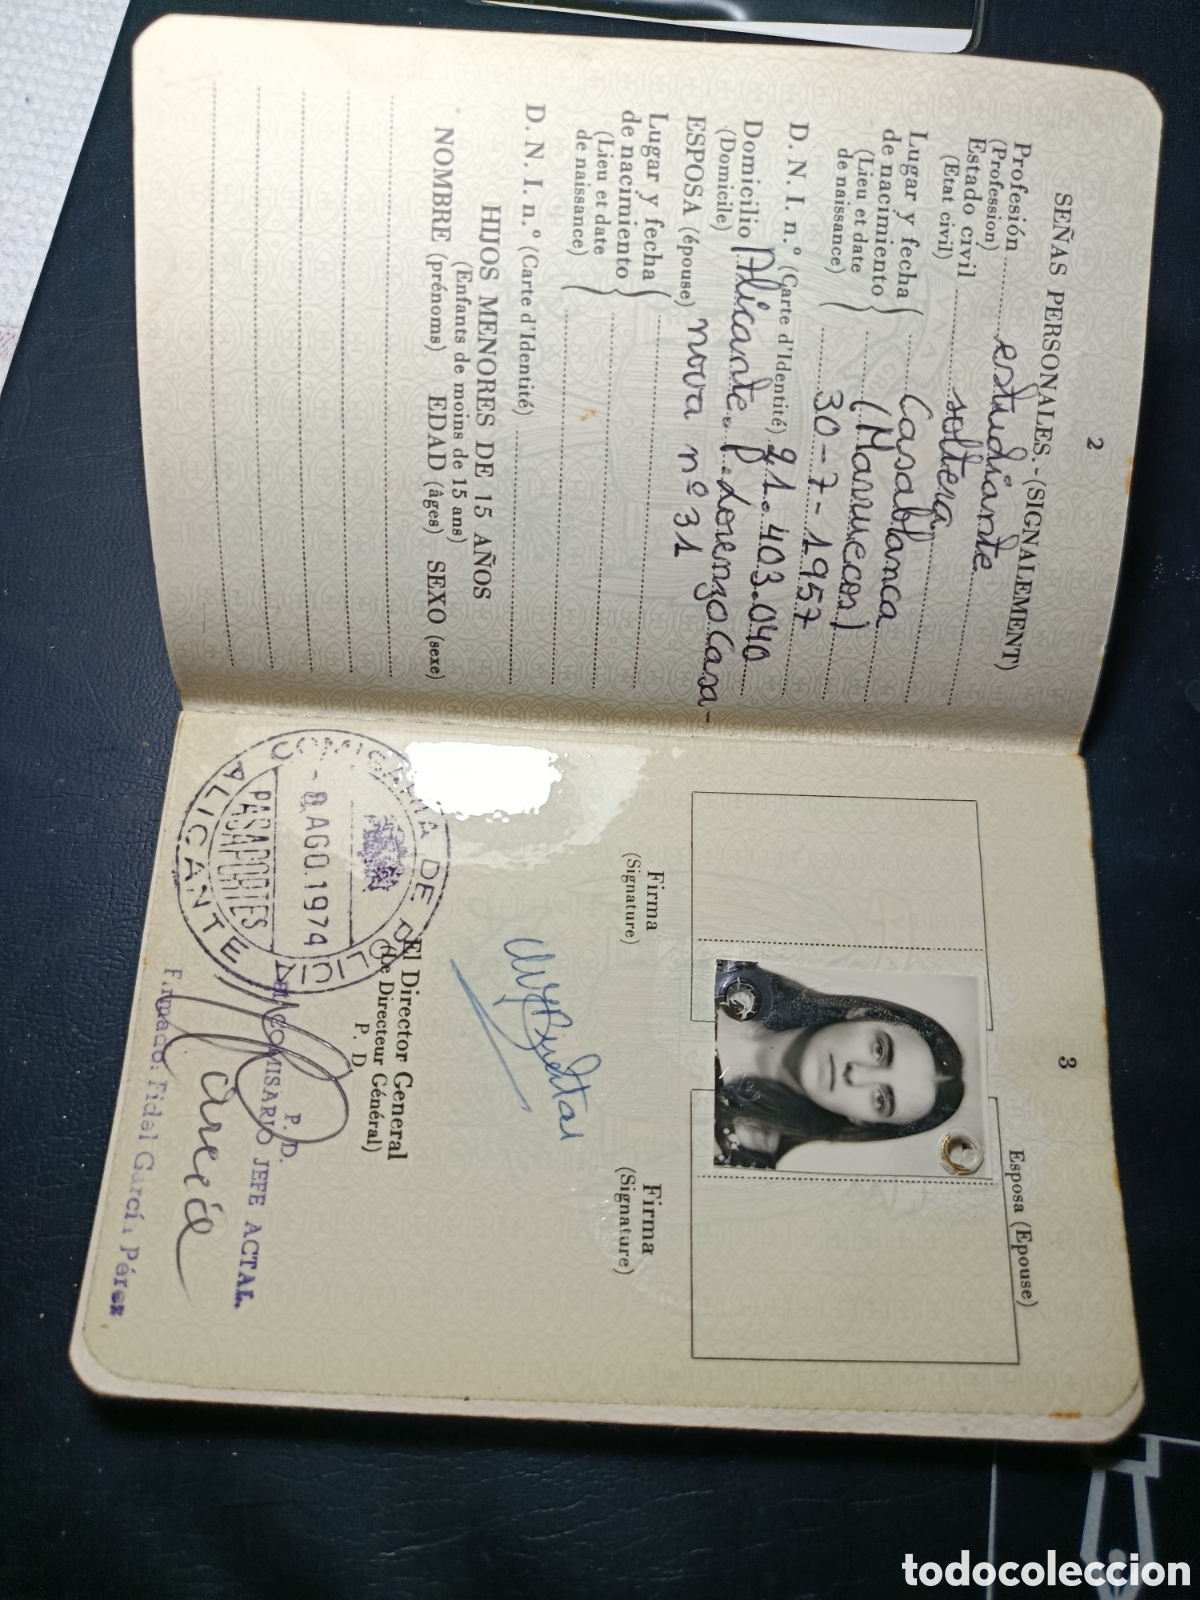 2
SEÑAS PERSONALES.-(SIGNALEMENT)
Profesión estudiante
(Profession)
Estado civil soltera
(Etat civil)
Lugar y fecha Casablanca
de nacimiento (Marruecos)
(Lieu et date 30-7-1957
de naissance)
D. N. I. n.º (Carte d'Identité) 21.403.040
Domicilio Alicante. P. Lorenzo Casa-
(Domicile)
ESPOSA (épouse) nova nº 31
Lugar y fecha
de nacimiento
(Lieu et date
de naissance)
D. N. I. n.º (Carte d'Identité)
HIJOS MENORES DE 15 AÑOS
(Enfants de moins de 15 ans)
NOMBRE (prénoms) EDAD (âges) SEXO (sexe)
3
Esposa (Epouse)
Firma
(Signature)
Firma
(Signature)
El Director General
(Le Directeur Général)
P. D.
COMISARIA DE POLICIA
- 8 AGO. 1974
PASAPORTES
ALICANTE
P. D.
COMISARIO JEFE ACTAL.
García
Firmado: Fidel García Pérez
todocoleccion